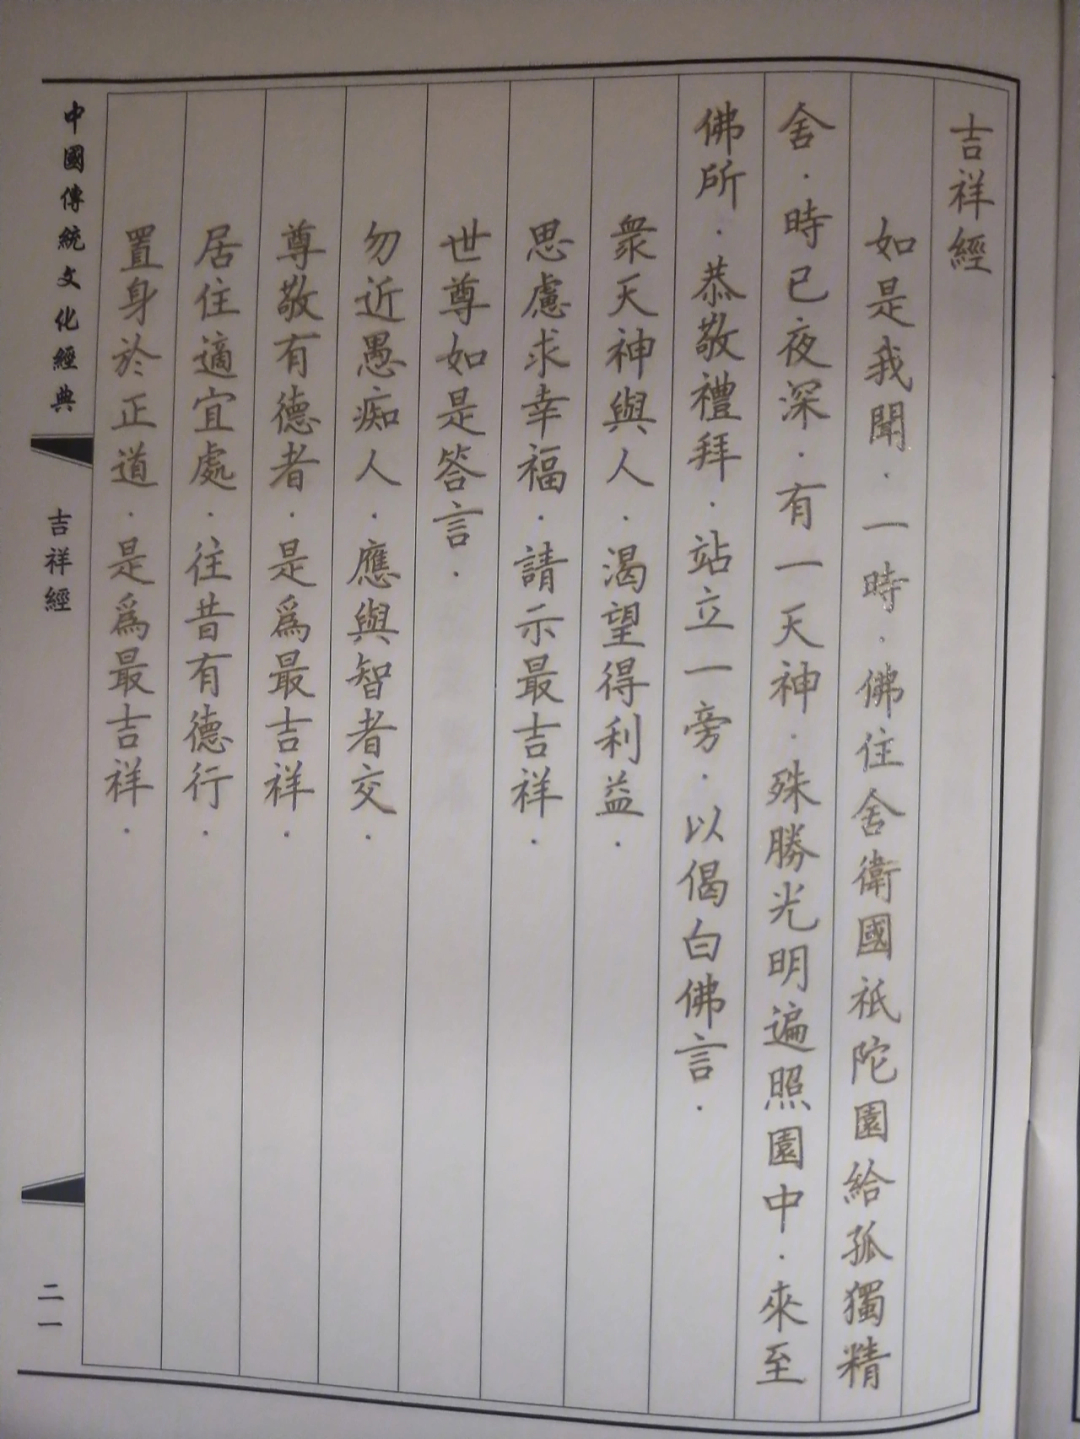 吉祥經
如是我聞．一時．佛住舍衛國祇陀園給孤獨精
舍．時已夜深．有一天神．殊勝光明遍照園中．來至
佛所．恭敬禮拜．站立一旁．以偈白佛言．
衆天神與人．渴望得利益．
思慮求幸福．請示最吉祥．
世尊如是答言．
勿近愚痴人．應與智者交．
尊敬有德者．是爲最吉祥．
居住適宜處．往昔有德行．
置身於正道．是爲最吉祥．
中國傳統文化經典
吉祥經
二一